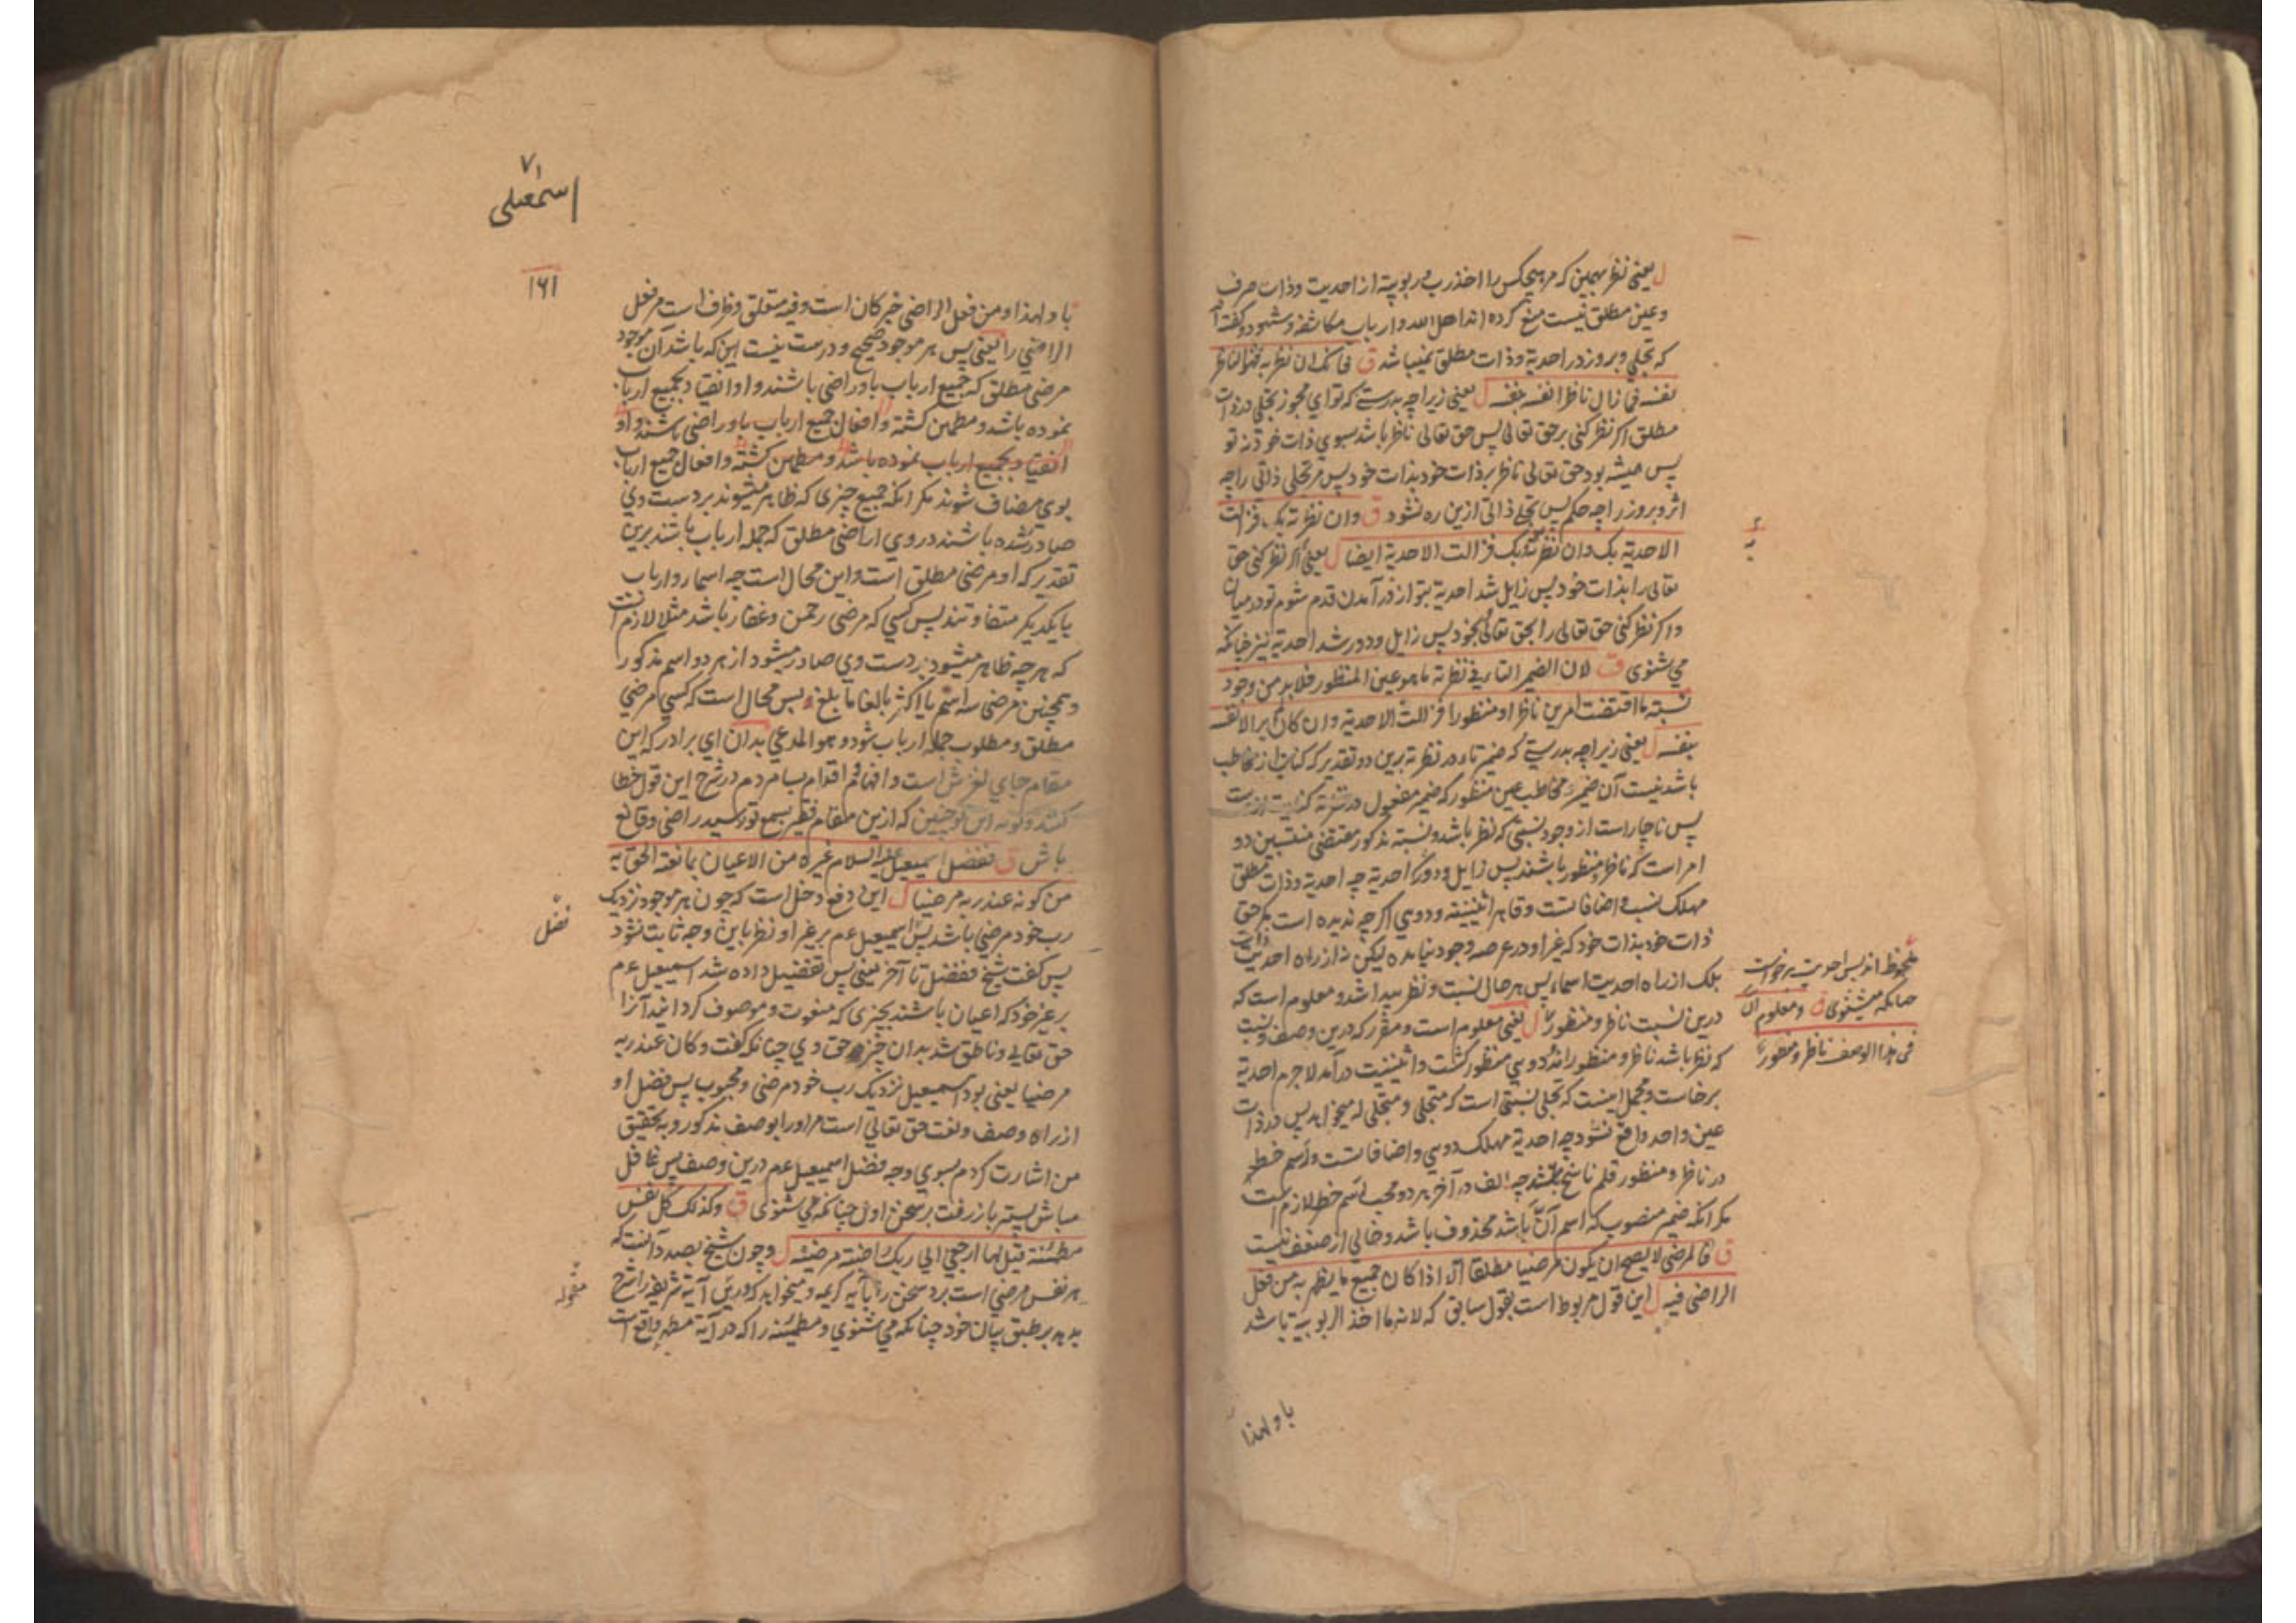 ل یعنی نظر بهمین که مر هیچکس را اخذ رب و ربوبیة از احدیت و ذات صرف
و عین مطلق نیست منع کرده اند اهل الله و ارباب مکاشفه و شهود و گفته اند
که تجلی و بروز در احدیة و ذات مطلق نمیباشد ق فانک ان نظرته به فهو الناظر
نفسه فما زال ناظرا نفسه بنفسه ل یعنی زیراچه بدرستے که تو ای مجوز تجلی در ذات
مطلق اکر نظر کنی بر حق تعالی پس حق تعالی ناظر باشد بسوی ذات خود نه تو
پس همیشه بود حق تعالی ناظر بر ذات خود بذات خود پس مر تجلی ذاتی را چه
اثر و بروز را چه حکم پس تجلے ذاتی ازین ره نشود ق وان نظرته بک فزالت
الاحدیة بک وان نظرته به و بک فزالت الاحدیة ایضا ل یعنی اکر نظر کنی حق
تعالی را بذات خود پس زایل شد احدیة بتو از در آمدن قدم شوم تو در میان
و اکر نظر کنی حق تعالی را بحق تعالی بخود پس زایل و دور شد احدیة نیز چنانکه
می شنوی ق لان الضمیر التاء فی نظرته ما هو عین المنظور فلا بد من وجود
نسبة ما اقتضت امرین ناظرا و منظورا فزالت الاحدیة وان کان لم یر الا نفسه
بنفسه ل یعنی زیراچه بدرستے که ضمیر تاء در نظرته برین دو تقدیر که کنایت از مخاطب
باشد نیست آن ضمیر مخاطب عین منظور که ضمیر مفعول در نظرته کنایت ازوست
پس ناچار است از وجود نسبتی که نظر باشد و نسبة مذکور مقتضی منتسبین دو
امر است که ناظر و منظور باشند پس زایل و دور کرد احدیة چه احدیة و ذات مطلق
مهلک نسب و اضافاتست و قاهر اثنینیة و دویی اکرچه ندیده است مکر حق
ذات خود بذات خود که غیر او در عرصه وجود نیامده لیکن نه از راه احدیت ذات
بلک از راه احدیت اسماء پس بهر حال نسبت و نظر پیدا شد و معلوم است که
درین نسبت ناظر و منظور ل یعنی معلوم است و مقرر که درین وصف و نسبت
که نظر باشد ناظر و منظور اند و دویی منظور کشت و اثنینیت در آمد لاجرم احدیة
برخاست و مجمل اینست که تجلی نسبتی است که متجلی و متجلی له میخواهد پس در ذات
عین واحد واقع نشود چه احدیة مهلک دویی و اضافاتست و اسم خط
در ناظر و منظور قلم ناسخ چه الف در آخر هر دو بحسب رسم خط لازم است
مکر انکه ضمیر منصوب که اسم ان باشد محذوف باشد و خالی از ضعف نیست
ق فالمرضی لا یصح ان یکون مرضیا مطلقا الا اذا کان جمیع ما یظهر به من فعل
الراضی فیه ل این قول مربوط است بقول سابق که لانه ما اخذ الربوبیة تا باشد
با و لهذا
ملحوظ اند پس احدیت برخواست
چنانکه میشنوی ق و معلوم ان
فی هذا الوصف ناظر و منظور
۷۱
اسمعیلی
۱۶۱
با و لهذا و من فعل الراضی خبر کان است و فیه متعلق و ظرف است مر فعل
الراضی را یعنی پس هر موجود صحیح و درست نیست این که باشد آن موجود
مرضی مطلق که جمیع ارباب باو راضی باشند و او انقیاد بجمیع ارباب
نموده باشد و مطمئن کشته و افعال جمیع ارباب باو راضی باشند و او
انقیاد بجمیع ارباب نموده باشد و مطمئن کشته و افعال جمیع ارباب
بوی مضاف شوند مکر انکه جمیع چیزی که ظاهر میشوند بر دست وی
صادر شده باشند در وی از راضی مطلق که جمله ارباب باشند برین
تقدیر که او مرضی مطلق است و این محال است چه اسماء و ارباب
بایکدیکر متفاوتند پس کسی که مرضی رحمن و غفار باشد مثلا لازم است
که هرچه ظاهر میشود بر دست وی صادر میشود از هر دو اسم مذکور
و همچنین مرضی سه اسم یا اکثر بالغا ما بلغ و بس محال است که کسی مرضی
مطلق و مطلوب جمله ارباب شود و هو المدعی بدان ای برادر که این
مقام جای لغزش است و افهام و اقدام بسا مردم در شرح این قول خطا
کنند که ازین مقام فقیر بسمع تو رسید راضی و قانع
باش ق فضل اسمعیل علیه السلام غیره من الاعیان بما نعته الحق به
من کونه عند ربه مرضیا ل این دفع دخل است که چون هر موجود نزدیک
رب خود مرضی باشد پس اسمعیل عم بر غیر او نظر باین وجه ثابت نشود
فضل
پس کفت شیخ ففضل تا آخر یعنی پس تفضیل داده شد اسمعیل عم
بر غیر خود که اعیان باشند بچیزی که منعوت و موصوف کردانید آنرا
حق تعالی و ناطق شد بدان چیز حق وی چنانکه کفت و کان عند ربه
مرضیا یعنی بود اسمعیل نزدیک رب خود مرضی و محبوب پس فضل او
از راه وصف و نعت حق تعالی است مر او را بوصف مذکور و بتحقیق
من اشارت کردم بسوی وجه فضل اسمعیل عم درین وصف پس غافل
مباش پستر باز رفت بر سخن اول چنانکه می شنوی ق و کذلک کل نفس
مطمئنة قیل لها ارجعی الی ربک راضیة مرضیة ل و چون شیخ بصدد آنست که
هر نفس مرضی است برد سخن را بآیه کریمه و میخواهد که درین آیة شریفه را شرح
بدهد بر طبق بیان خود چنانکه می شنوی و مطمئنه را که در آیة مطهر واقع است
مقوله